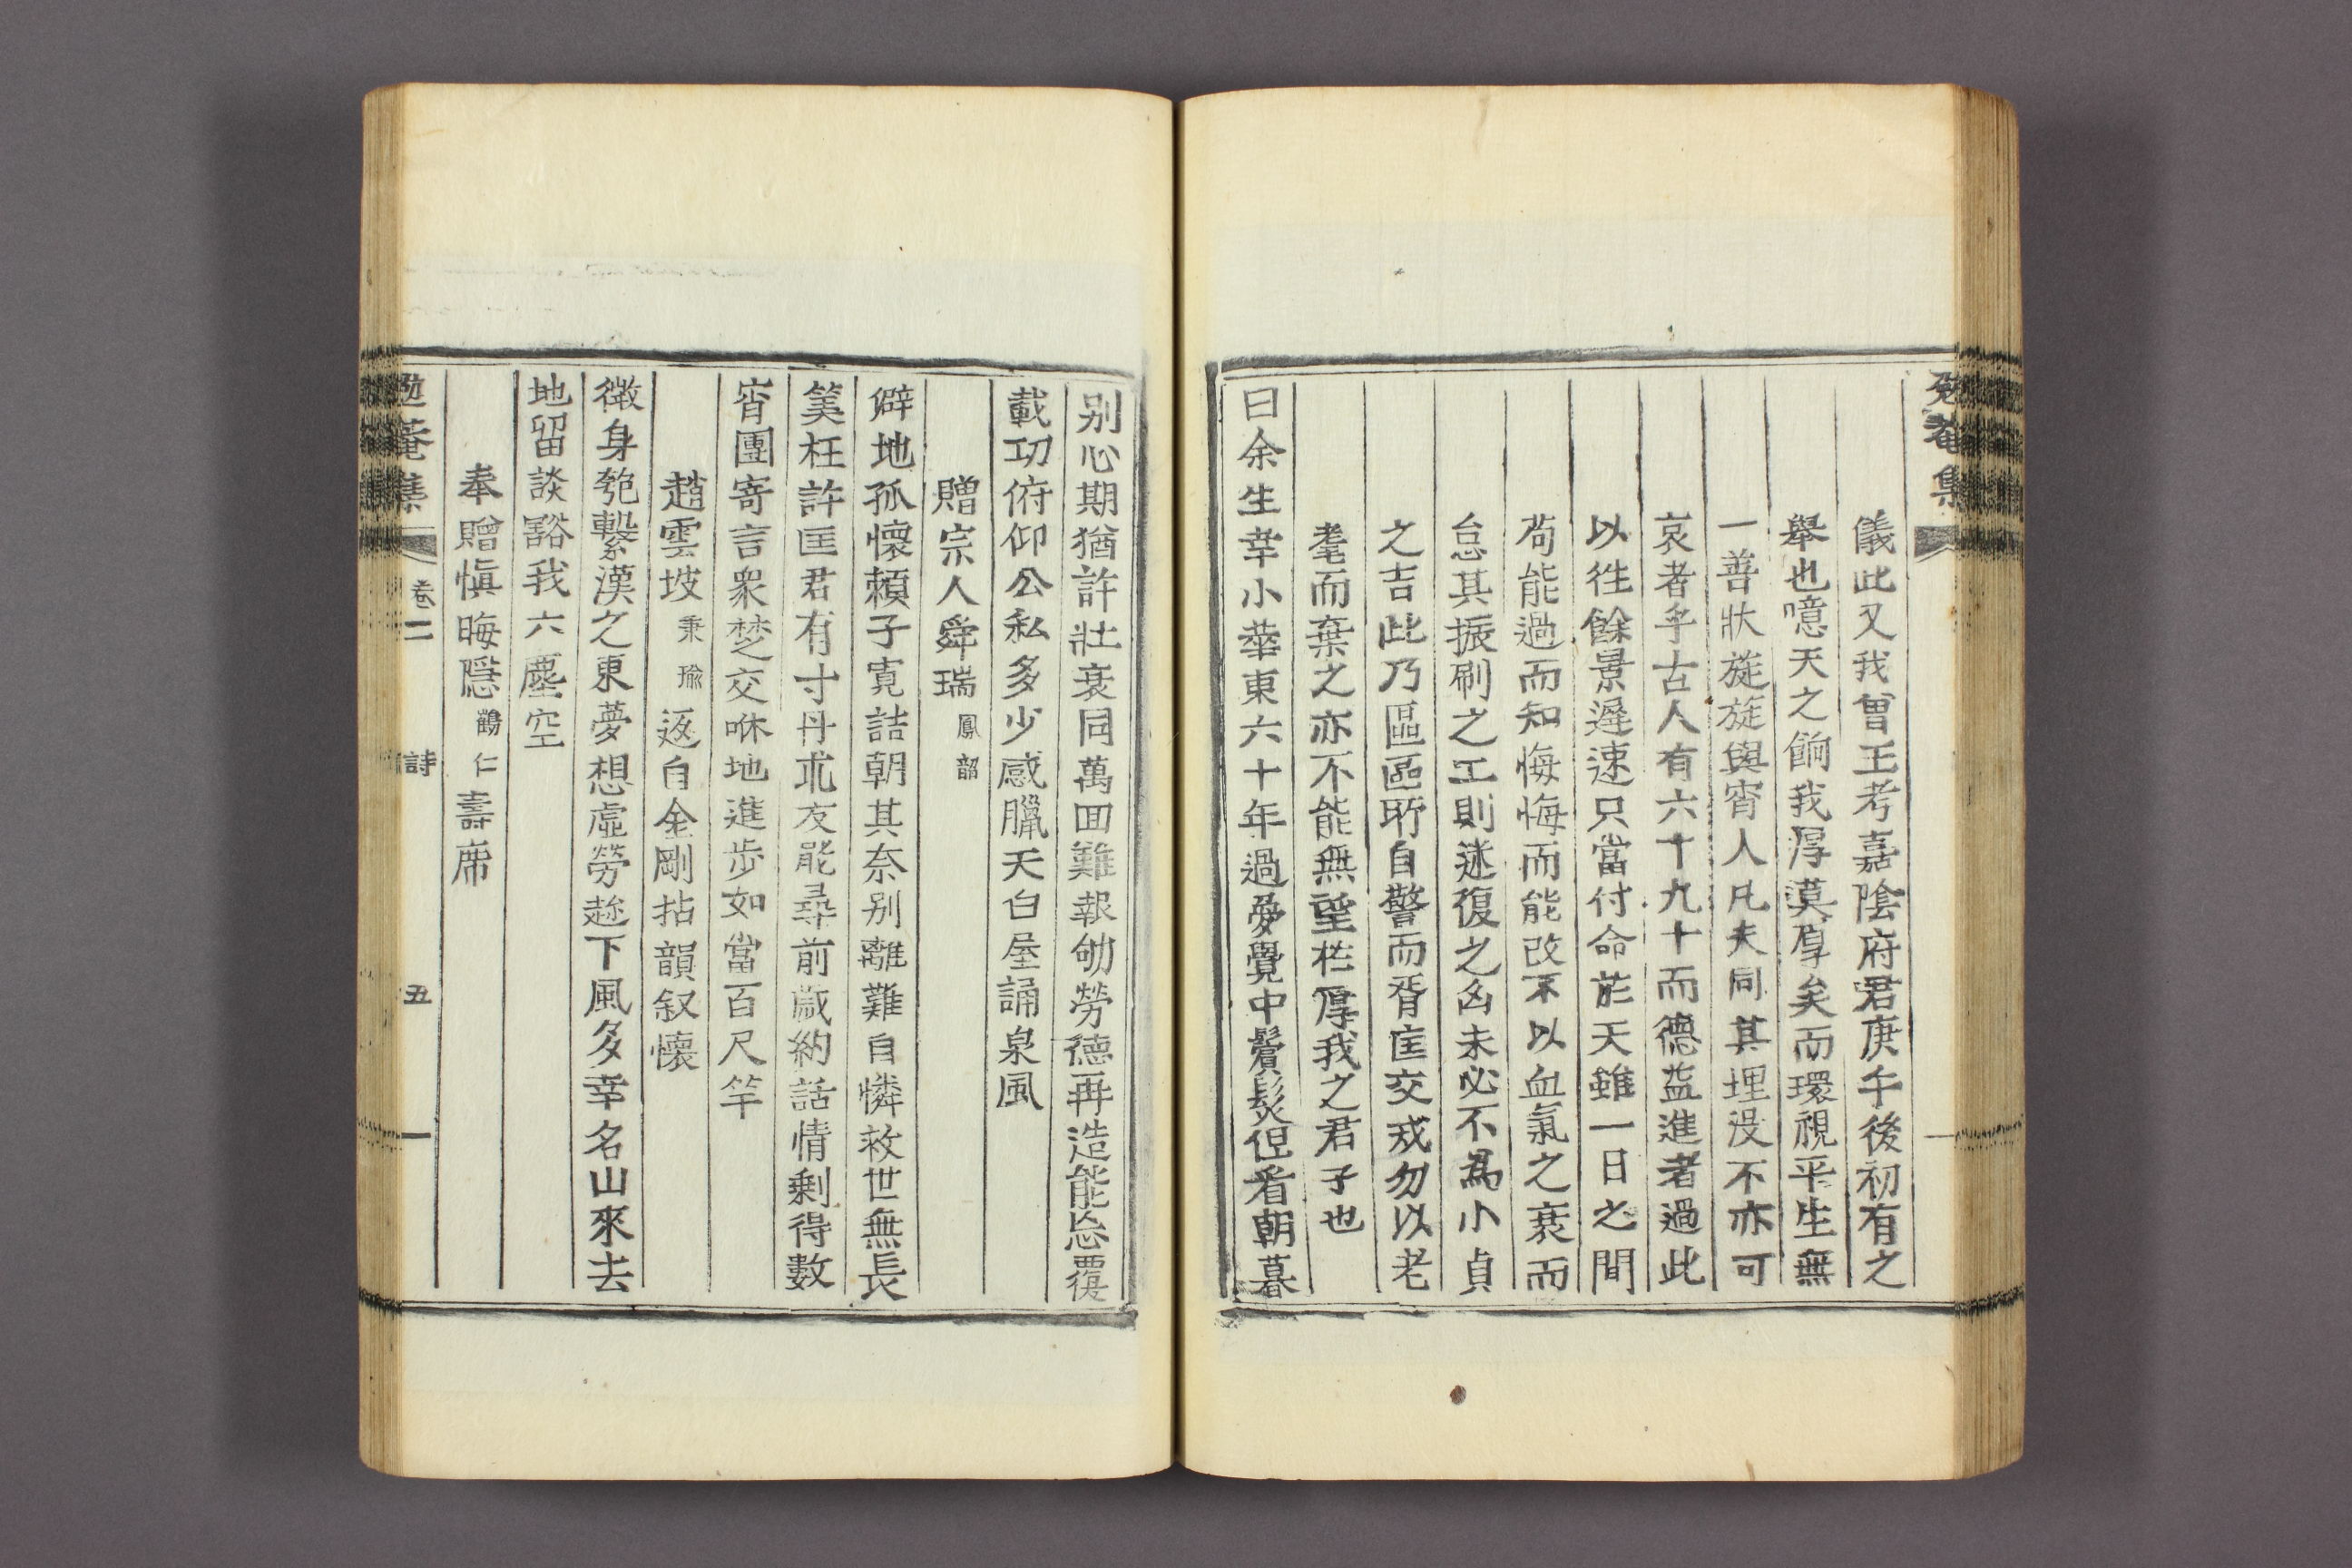 菴集
儀此又我曾王考嘉陰府君庚午後初有之
舉也噫天之餉我厚莫厚矣而環視平生無
一善狀旋旋與宵人凡夫同其埋没不亦可
哀者乎古人有六十九十而德益進者過此
以徃餘景遲速只當付命於天雖一日之間
苟能過而知悔悔而能改不以血氣之衰而
怠其振刷之工則迷復之凶未必不爲小貞
之吉此乃區區所自警而胥匡交戒勿以老
耄而棄之亦不能無望於厚我之君子也
曰余生幸小華東六十年過夢覺中鬢髮但看朝暮
别心期猶許壯衰同萬回難報劬勞德再造能忘覆
載功俯仰公私多少感臘天白屋誦泉風
贈宗人舜瑞鳳韶
僻地孤懷賴子寬詰朝其奈别離難自憐救世無長
筭枉許匡君有寸丹朮友能尋前歲約話情剩得數
宵團寄言衆楚交咻地進步如當百尺竿
趙雲坡秉瑜返自金剛拈韻叙懷
徵身匏繫漢之東夢想虛勞趂下風多幸名山來去
地留談豁我六塵空
奉贈愼晦隱鶴仁壽席
菴集 卷二 詩 五 一